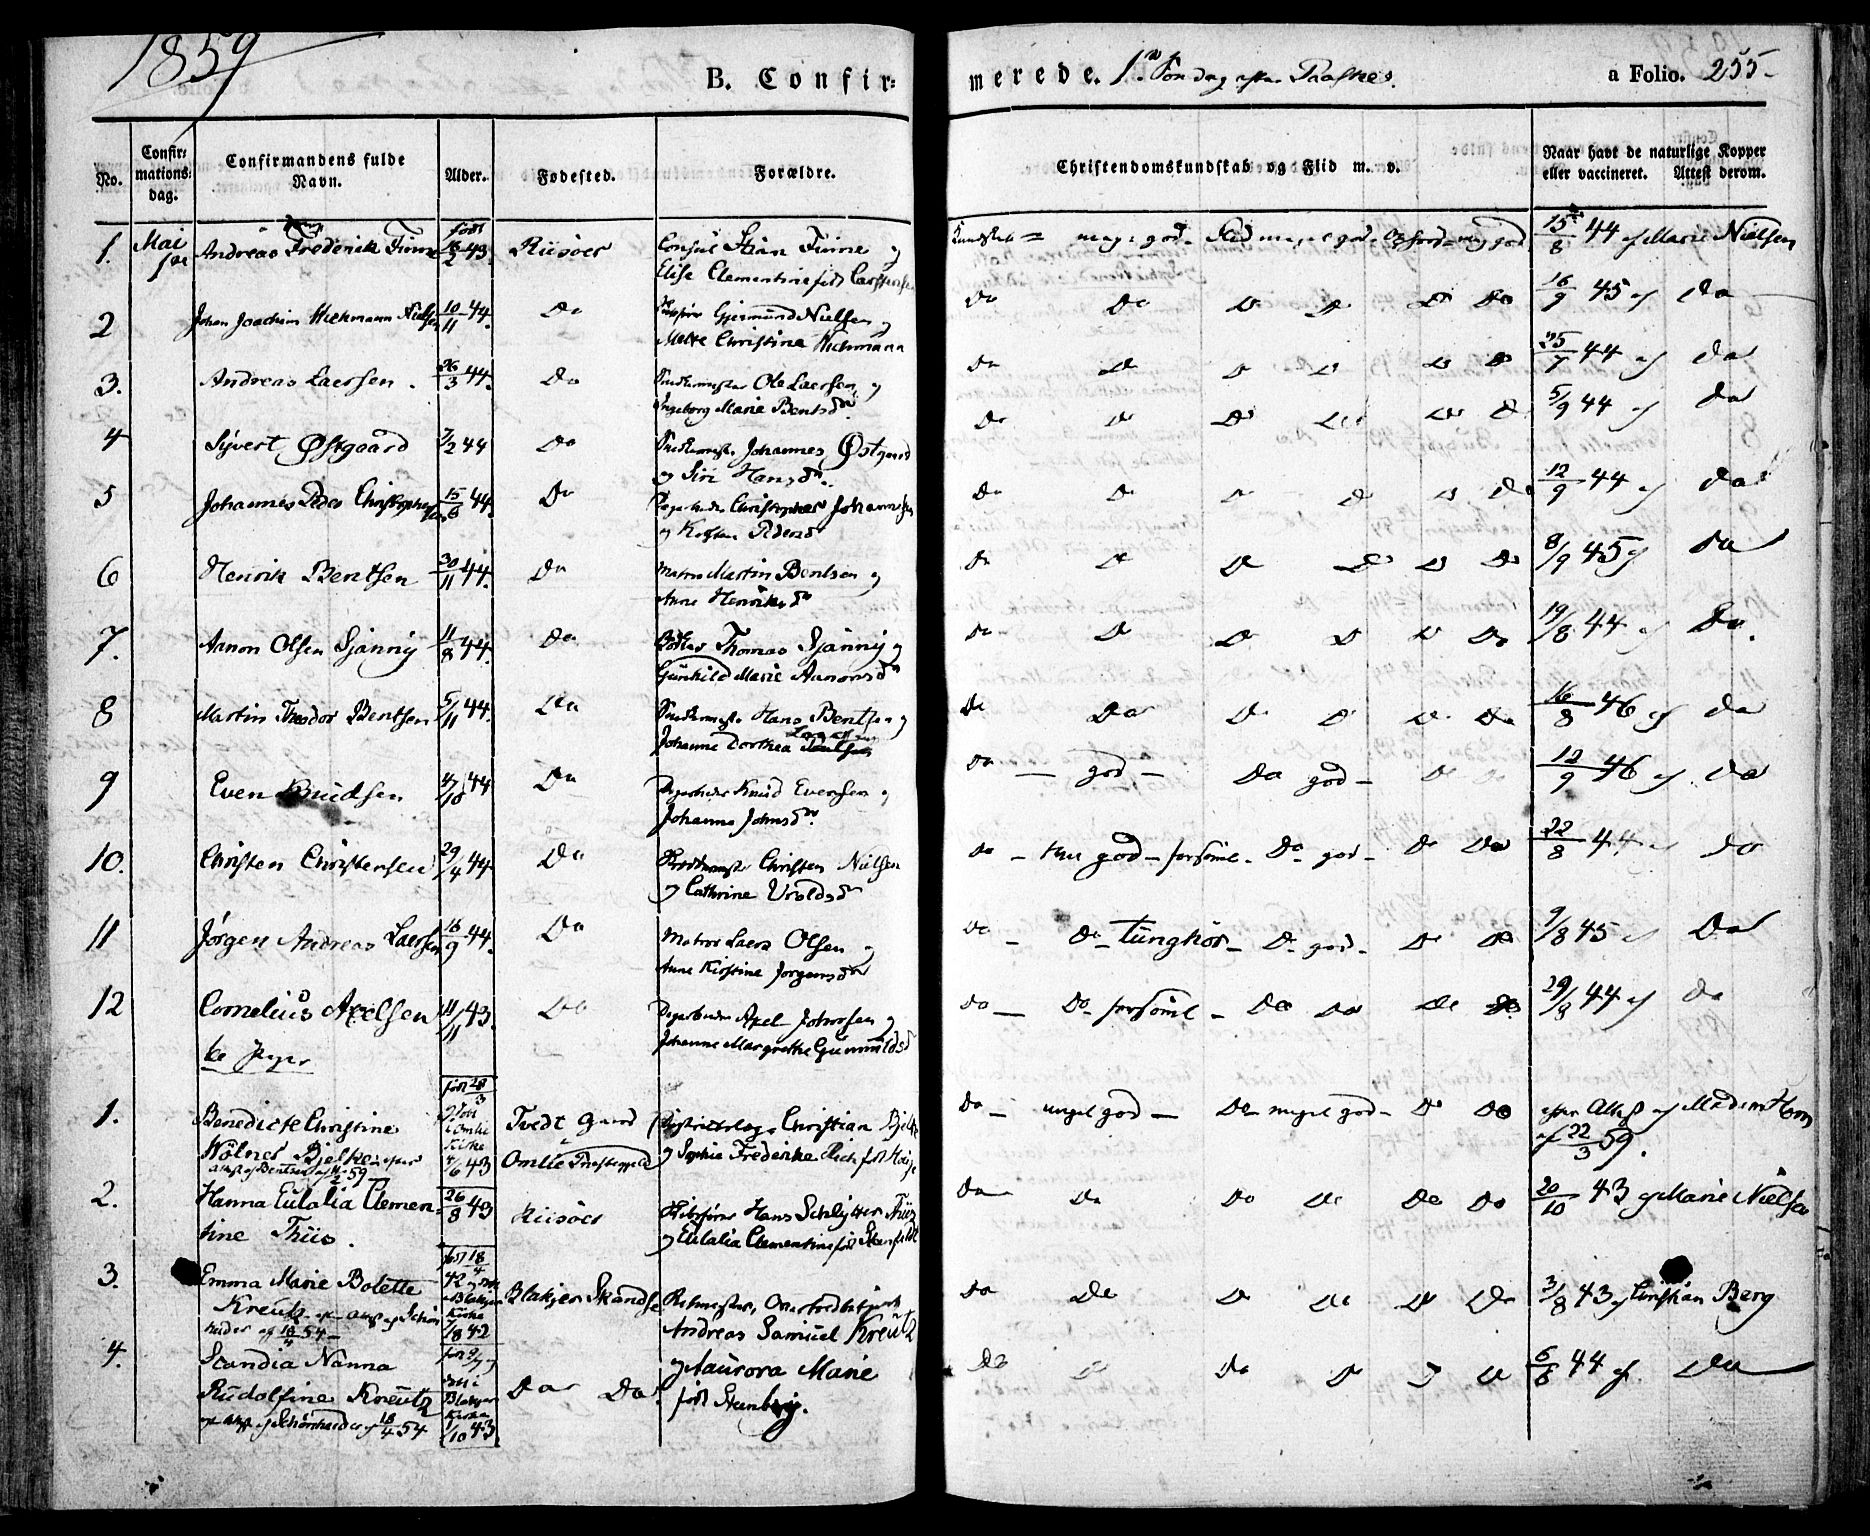 1859
B. Confirmerede. 1ste Søndag efter Paaske.
a Folio. 255
No.
Confirmationsdag.
Confirmandens fulde Navn.
Alder.
Fødested.
Forældre.
Christendomskundskab og Flid m. v.
Naar havt de naturlige Kopper eller vaccineret. Attest derom.
1. Mai 1ste Andreas Frederik Finne født 43 Riisøer Consul Finne og
Elise Clementine født Carstensen
Kundskab = meget god - Flid meget god - Opførsel meget god 15/8 44 af Marie Nielsen
2 Johan Joachim Wichmann Nielsen 10/11 44. Do Gjermund Nielsen og
Mette Christine Wichmann
Do Do Do Do Do Do 16/9 45 af Do
3. Andreas Laersen. 26/3 44. Do Ole Laersen og
Ingeborg Marie Bentsdr.
Do Do Do Do Do Do 44 af Do
4 Syvert Østgaard 7/2 44 Do Johannes Østgaard
og Siri Hansdr.
Do Do Do Do Do Do 5/9 44 af Do
5 Johannes Peder Christophersen 15/6 44. Do Christopher Johannesen
og Pedersdr
Do Do Do Do Do Do 12/9 44 af Do
6 Henrik Bentsen 30/11 44. Do Matros Martin Bentsen og
Anne Henriksdr
Do Do Do Do Do Do 8/9 45 af Do
7. Aanon Olsen Sjånnij 11/8 44. Do Thomas Sjånnij og
Gunhild Marie Aanonsdr
Do Do Do Do Do Do 19/8 44 af Do.
8 Martin Theodor Bentsen 5/11 44. Do Hans Bentsen og
Johanne Dorthea
Do Do Do Do Do Do 16/8 46 af Do
9 Even Knudsen 4/10 44 Do Knud Evensen og
Johanne Johnsdr.
Do - god - Do god - Do Do 12/9 46 af Do
10. Christen Christensen 29/4 44 Do Christen Nielsen
og Cathrine Uroldsdr
Do - god - forsømt - Do god - Do Do 22/8 44 af Do
11 Jørgen Andreas Laersen 16/9 44. Do Matros Laers Olsen og
Anne Kirstine Jørgensdr
Do - Do - tunghør - Do god - Do Do 9/8 45 af Do
12 Cornelius Axelsen 11/11 43. Do Axel Johnsen og
Johanne Margrethe Gunnuldsdr
Do - Do forsømt - Do Do Do Do 29/8 44 af Do
to Piger
1. Benedicte Christine født 28/3 Tvedt Gaard i Districtslæge Christian Bjelke
Wølner Bjelke efter døbt i Omlie Kirke 4/6 43 Omlie Præstegjeld og Sophie Frederikke født
Attest af Bentsen af 59
Do - meget god - Do meget god - Do Do efter Attest af Madm Horn
af 22/3 59.
2. Hanna Eulalia Clemen- 26/8 43 Riisøer Hans Schlytter Thiis
tine Thiis. og Eulalia Clementine født Steenfeldt
Do Do Do Do Do Do 20/10 43 af Marie Nielsen
3. Emma Marie Bolette født 18/4 42 og døbt Blakjer Skandse
Kreutz Attest af Schön- i Blakjer Kirke 7/8 42 Andreas Samuel Kreutz
heder af 18/4 54
Do Do Do Do Do Do 3/8 43 af Christian Berg
4. Scandia Nanna født og Aurora Marie
Rudolfine Kreutz i Blakjer Kirke 1/10 43 Do Do. født Steenberg.
Attest af Schönheder af 18/4 54
Do Do Do Do Do Do 6/8 44 af Do